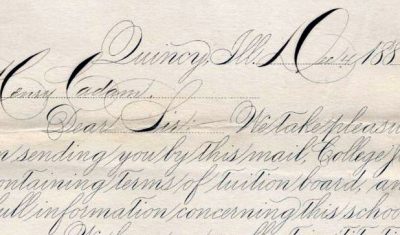 Quincy, Ill., Nov. 188
Henry Eadam.
Dear Sir:- We take pleasu
n sending you by this mail, College J
ontaining terms of tuition board, an
full information concerning this schoo